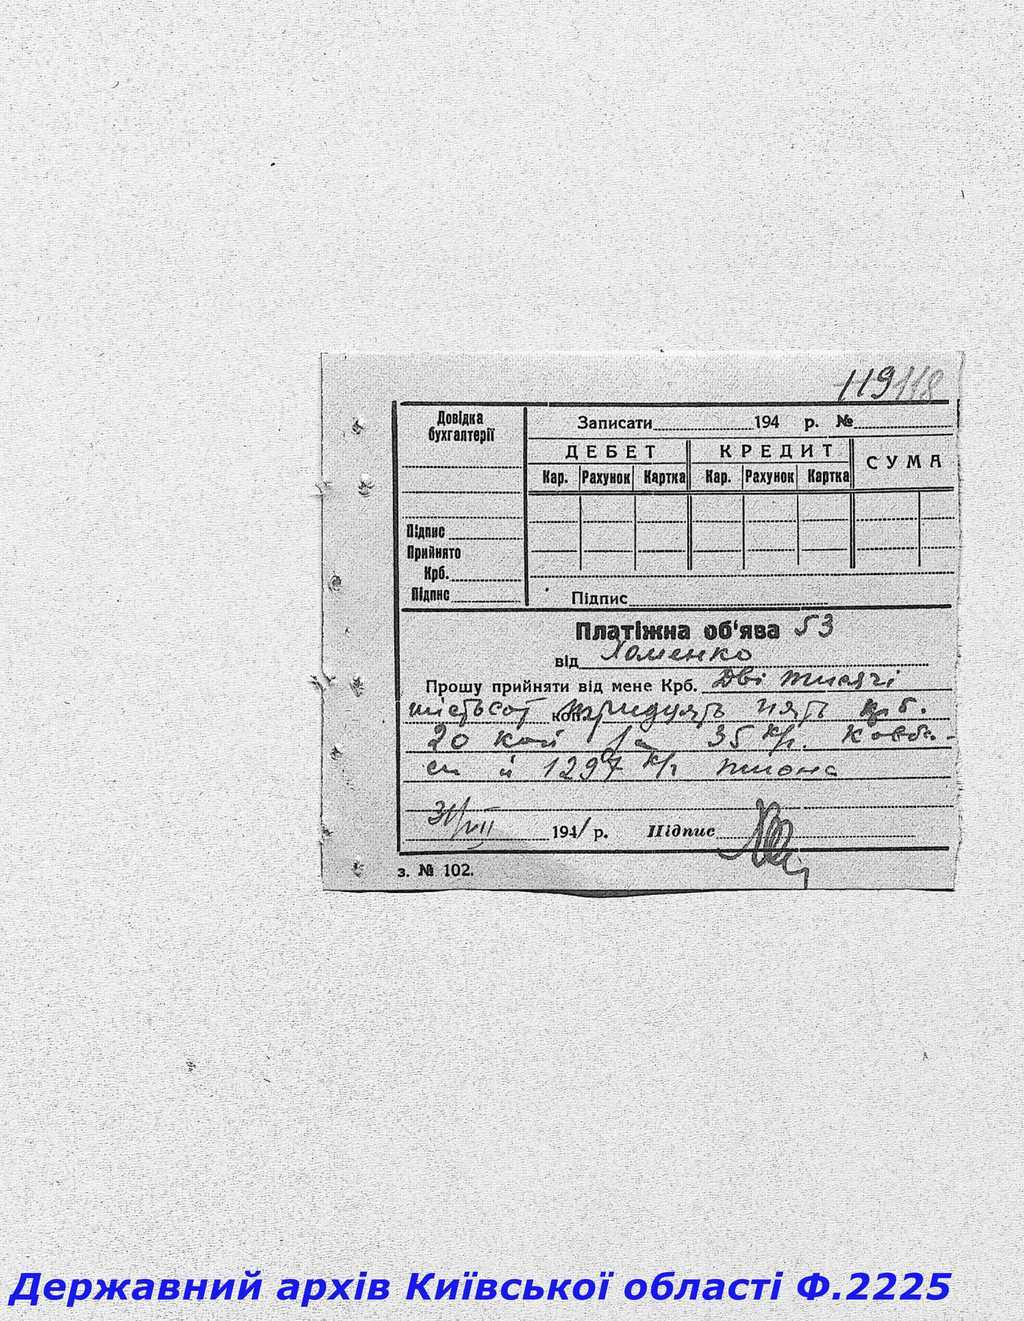 119 118
Довідка
бухгалтерії
Підпис
Прийнято
Крб.
Підпис
Записати 194 р. №
ДЕБЕТ КРЕДИТ СУМА
Кар. Рахунок Картка Кар. Рахунок Картка
Підпис
Платіжна об'ява 53
від Хоменко
Прошу прийняти від мене Крб. Дві тисячі
шістьсот коп. тридцять пять крб.
20 коп за 35 кг. ковба-
си й 1297 кг пшона
31/VII 1941 р. Підпис
з. № 102.
Державний архів Київської області Ф.2225